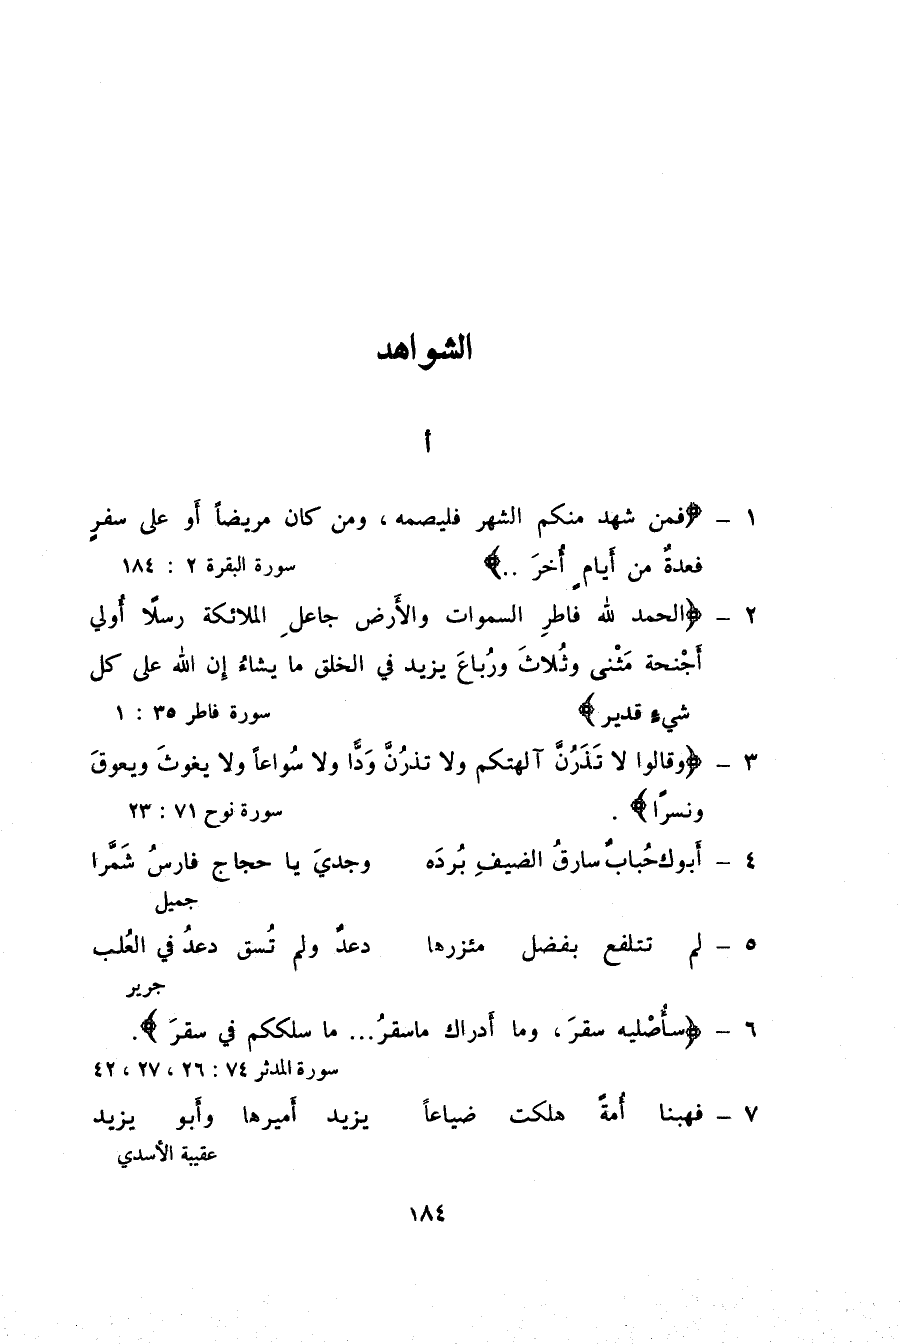 الشواهد
أ
١ – ﴿فمن شهد منكم الشهر فليصمه ، ومن كان مريضاً أَو على سفرٍ
فعدةٌ من أَيامٍ أُخرَ ..﴾ سورة البقرة ٢ : ١٨٤
٢ – ﴿الحمد لله فاطرِ السموات والأَرض جاعلِ الملائكة رسلًا أُولي
أَجْنحة مَثْنى وثُلاثَ ورُباعَ يزيد في الخلق ما يشاءُ إن الله على كل
شيءٍ قدير ﴾ سورة فاطر ٣٥ : ١
٣ – ﴿وقالوا لا تَذَرُنَّ آلهتكم ولا تذرُنَّ وَدًّا ولا سُواعاً ولا يغوثَ ويعوقَ
ونسرًا﴾ . سورة نوح ٧١ : ٢٣
٤ – أَبوك حُبابٌ سارقُ الضيفِ بُردَه وجديَ يا حجاج فارسُ شَمَّرا
جميل
٥ – لم تتلفع بفضل مئزرها دعدٌ ولم تُسق دعدُ في العُلب
جرير
٦ – ﴿سأُصْليه سقرَ ، وما أَدراك ماسقرُ... ما سلككم في سقرَ ﴾.
سورة المدثر ٧٤ : ٢٦ ، ٢٧ ، ٤٢
٧ – فهبنا أُمةً هلكت ضياعاً يزيد أَميرها وأَبو يزيد
عقيبة الأسدي
١٨٤